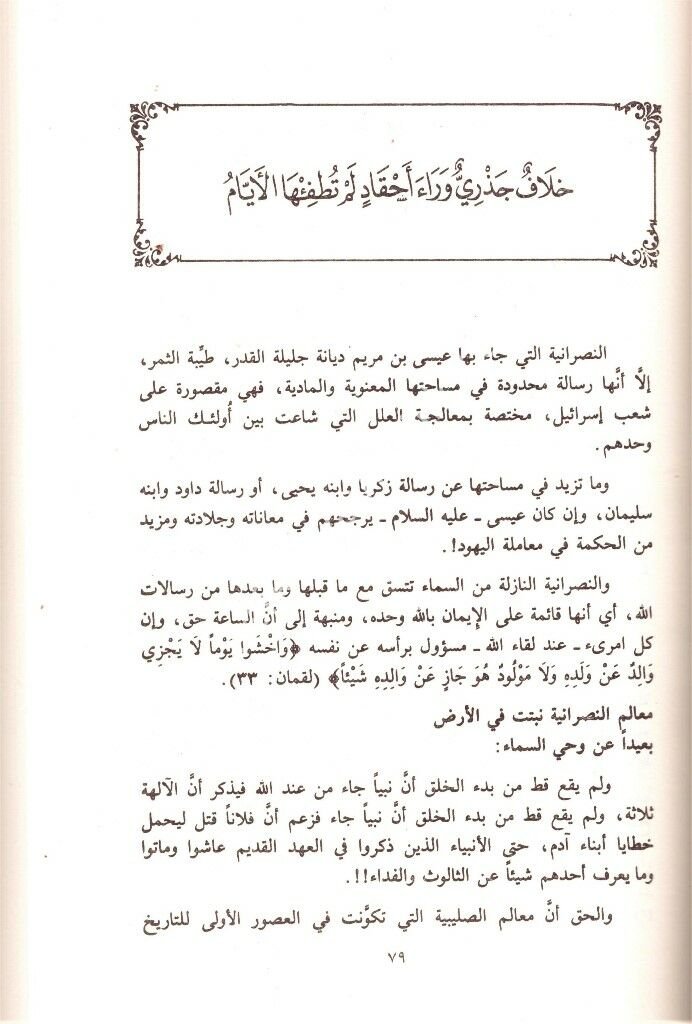 خِلَافٌ جَذْرِيٌّ وَرَاءَ أَحْقَادٍ لَمْ تُطْفِئْهَا الأَيَّامُ
النصرانية التي جاء بها عيسى بن مريم ديانة جليلة القدر، طيِّبة الثمر،
إلاَّ أنَّها رسالة محدودة في مساحتها المعنوية والمادية، فهي مقصورة على
شعب إسرائيل، مختصة بمعالجة العلل التي شاعت بين أُولئك الناس
وحدهم.
وما تزيد في مساحتها عن رسالة زكريا وابنه يحيى، أو رسالة داود وابنه
سليمان، وإن كان عيسى ـ عليه السلام ـ يرجحهم في معاناته وجلادته ومزيد
من الحكمة في معاملة اليهود!.
والنصرانية النازلة من السماء تتسق مع ما قبلها وما بعدها من رسالات
الله، أي أنها قائمة على الإِيمان بالله وحده، ومنبهة إلى أنَّ الساعة حق، وإن
كل امرىء ـ عند لقاء الله ـ مسؤول برأسه عن نفسه ﴿وَاخْشَوا يَوْماً لَا يَجْزِي
وَالِدٌ عَنْ وَلَدِهِ وَلَا مَوْلُودٌ هُوَ جَازٍ عَنْ وَالِدِهِ شَيْئاً﴾ (لقمان: ٣٣).
معالم النصرانية نبتت في الأرض
بعيداً عن وحي السماء:
ولم يقع قط من بدء الخلق أنَّ نبياً جاء من عند الله فيذكر أنَّ الآلهة
ثلاثة، ولم يقع قط من بدء الخلق أنَّ نبياً جاء فزعم أنَّ فلاناً قتل ليحمل
خطايا أبناء آدم، حتى الأنبياء الذين ذكروا في العهد القديم عاشوا وماتوا
وما يعرف أحدهم شيئاً عن الثالوث والفداء!!.
والحق أنَّ معالم الصليبية التي تكوَّنت في العصور الأولى للتاريخ
٧٩